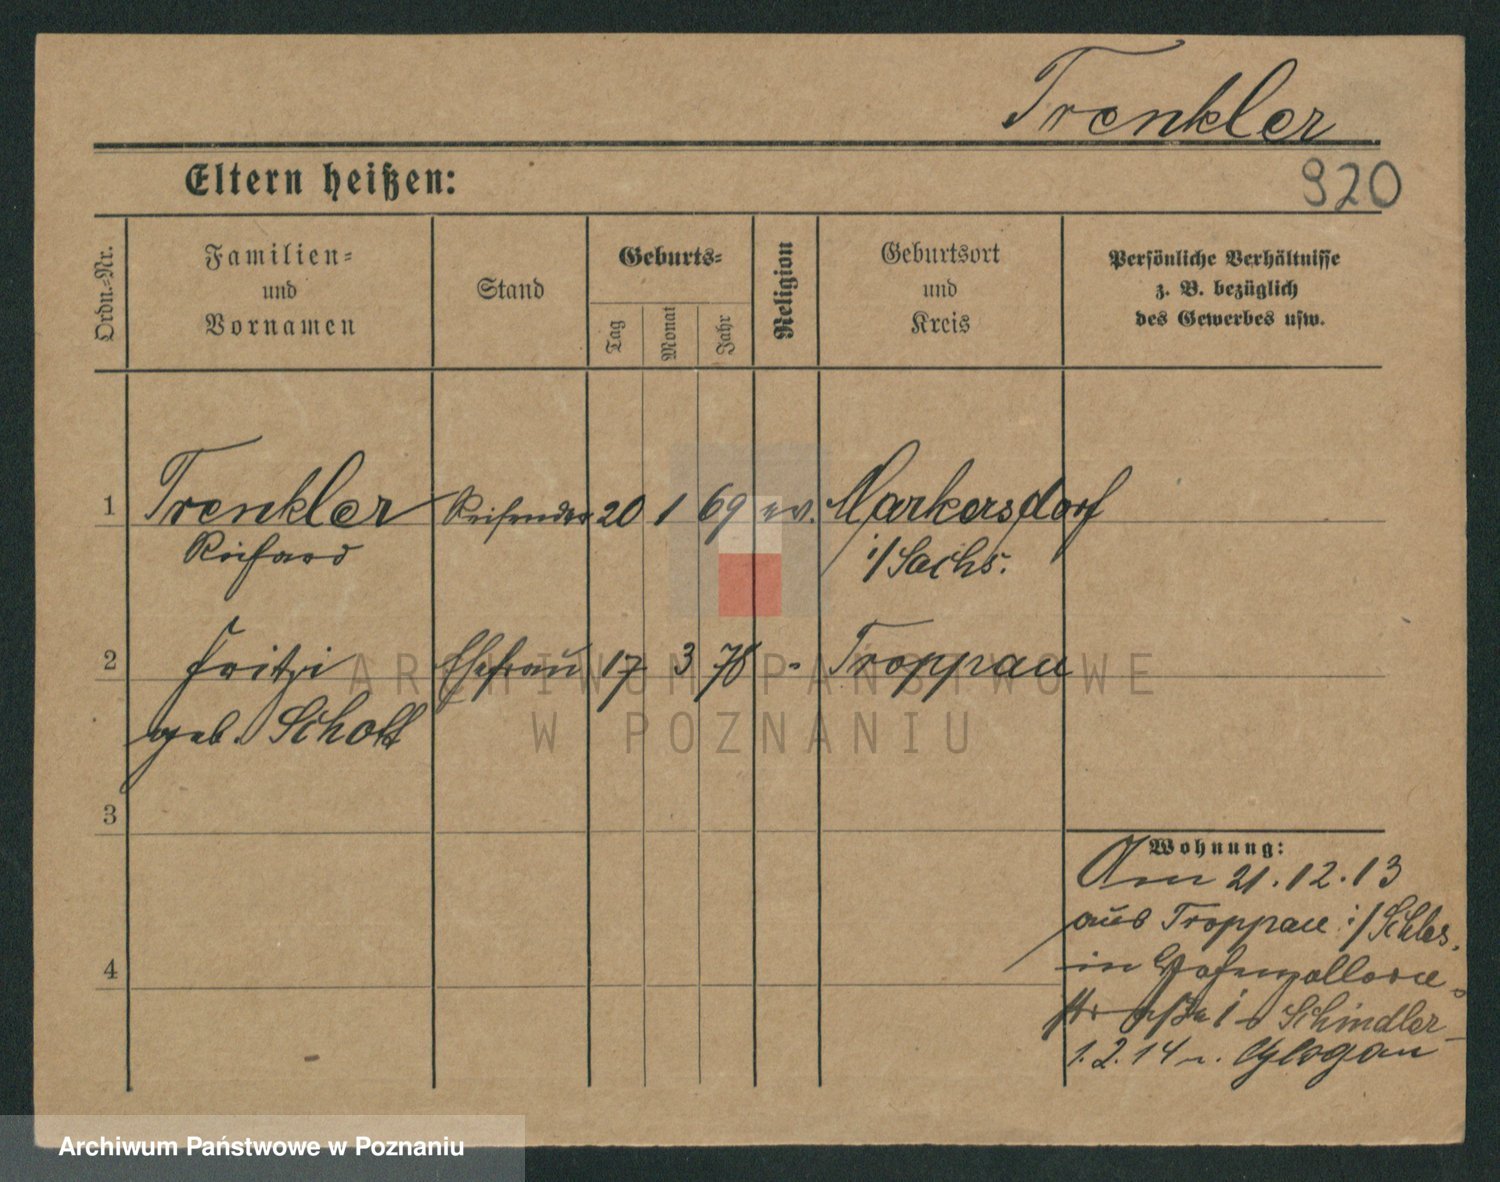 Trenkler
Eltern heißen:
920
Ordn.-Nr.
Familien-
und
Vornamen
Stand
Geburts-
Tag
Monat
Jahr
Religion
Geburtsort
und
Kreis
Persönliche Verhältnisse
z. B. bezüglich
des Gewerbes usw.
1 Trenkler Reisender 20 1 69 ev. Markersdorf
Richard i/Sachs.
2 Fritzi Ehefrau 17 3 78 " Troppau
geb. Schott
3
4
Wohnung:
Am 21.12.13
aus Troppau i/Schles.
in Hohenzollern-
str 1 b Schindler
1.2.14 n. Glogau
ARCHIWUM PAŃSTWOWE
W POZNANIU
Archiwum Państwowe w Poznaniu